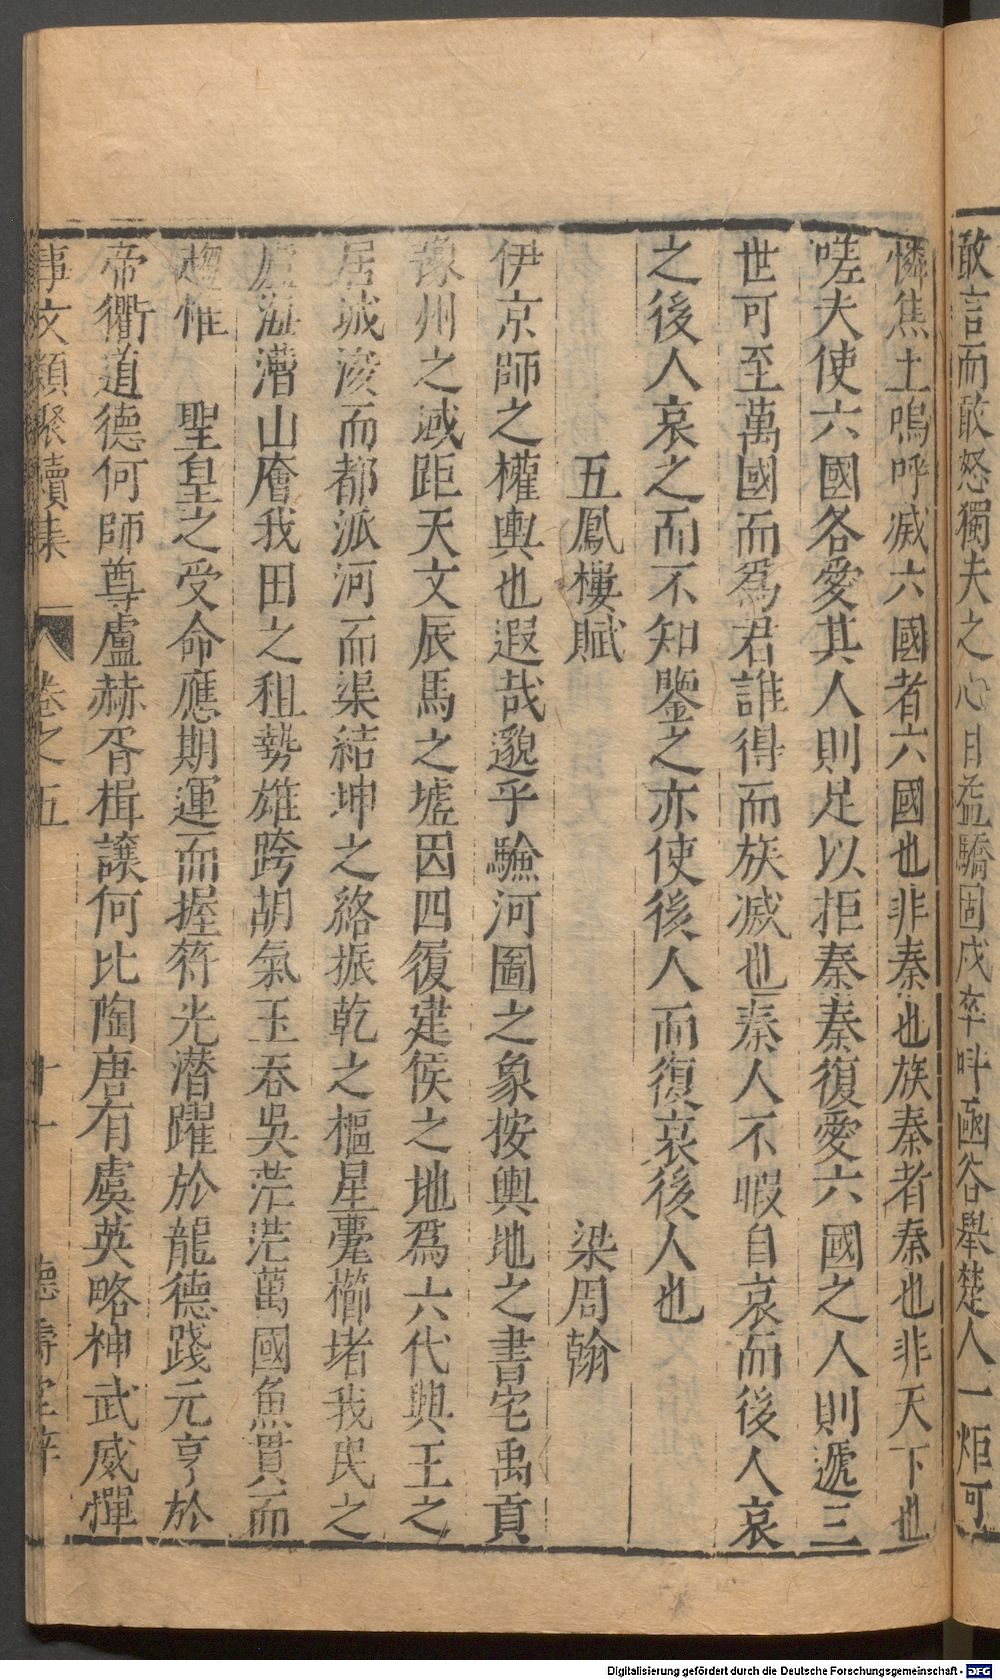 敢言而敢怒獨夫之心日益驕固戍卒呌函谷舉楚人一炬可
憐焦土嗚呼滅六國者六國也非秦也族秦者秦也非天下也
嗟夫使六國各愛其人則足以拒秦秦復愛六國之人則遞三
世可至萬國而爲君誰得而族滅也秦人不暇自哀而後人哀
之後人哀之而不知鑒之亦使後人而復哀後人也
五鳳樓賦 梁周翰
伊京師之權輿也遐哉邈乎驗河圖之象按輿地之書宅禹貢
豫州之域距天文辰馬之墟因四復建侯之地爲六代興王之
居城浚而都派河而渠結坤之絡振乾之樞星躔櫛堵我民之
廬海漕山廥我田之租勢雄跨胡氣王吞吳茫茫萬國魚貫而
趨惟 聖皇之受命應期運而握符光潛躍於龍德踐元亨於
帝衢道德何師尊盧赫胥揖讓何比陶唐有虞英略神武威憚
事文類聚續集 卷之五 十一 德壽堂梓
Digitalisierung gefördert durch die Deutsche Forschungsgemeinschaft - DFG